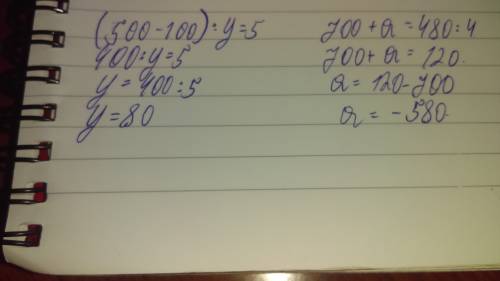 (500-100):y=5
400:y=5
y=400:5
y=80
700+a=480:4
700+a=120.
a=120-700
a=-580